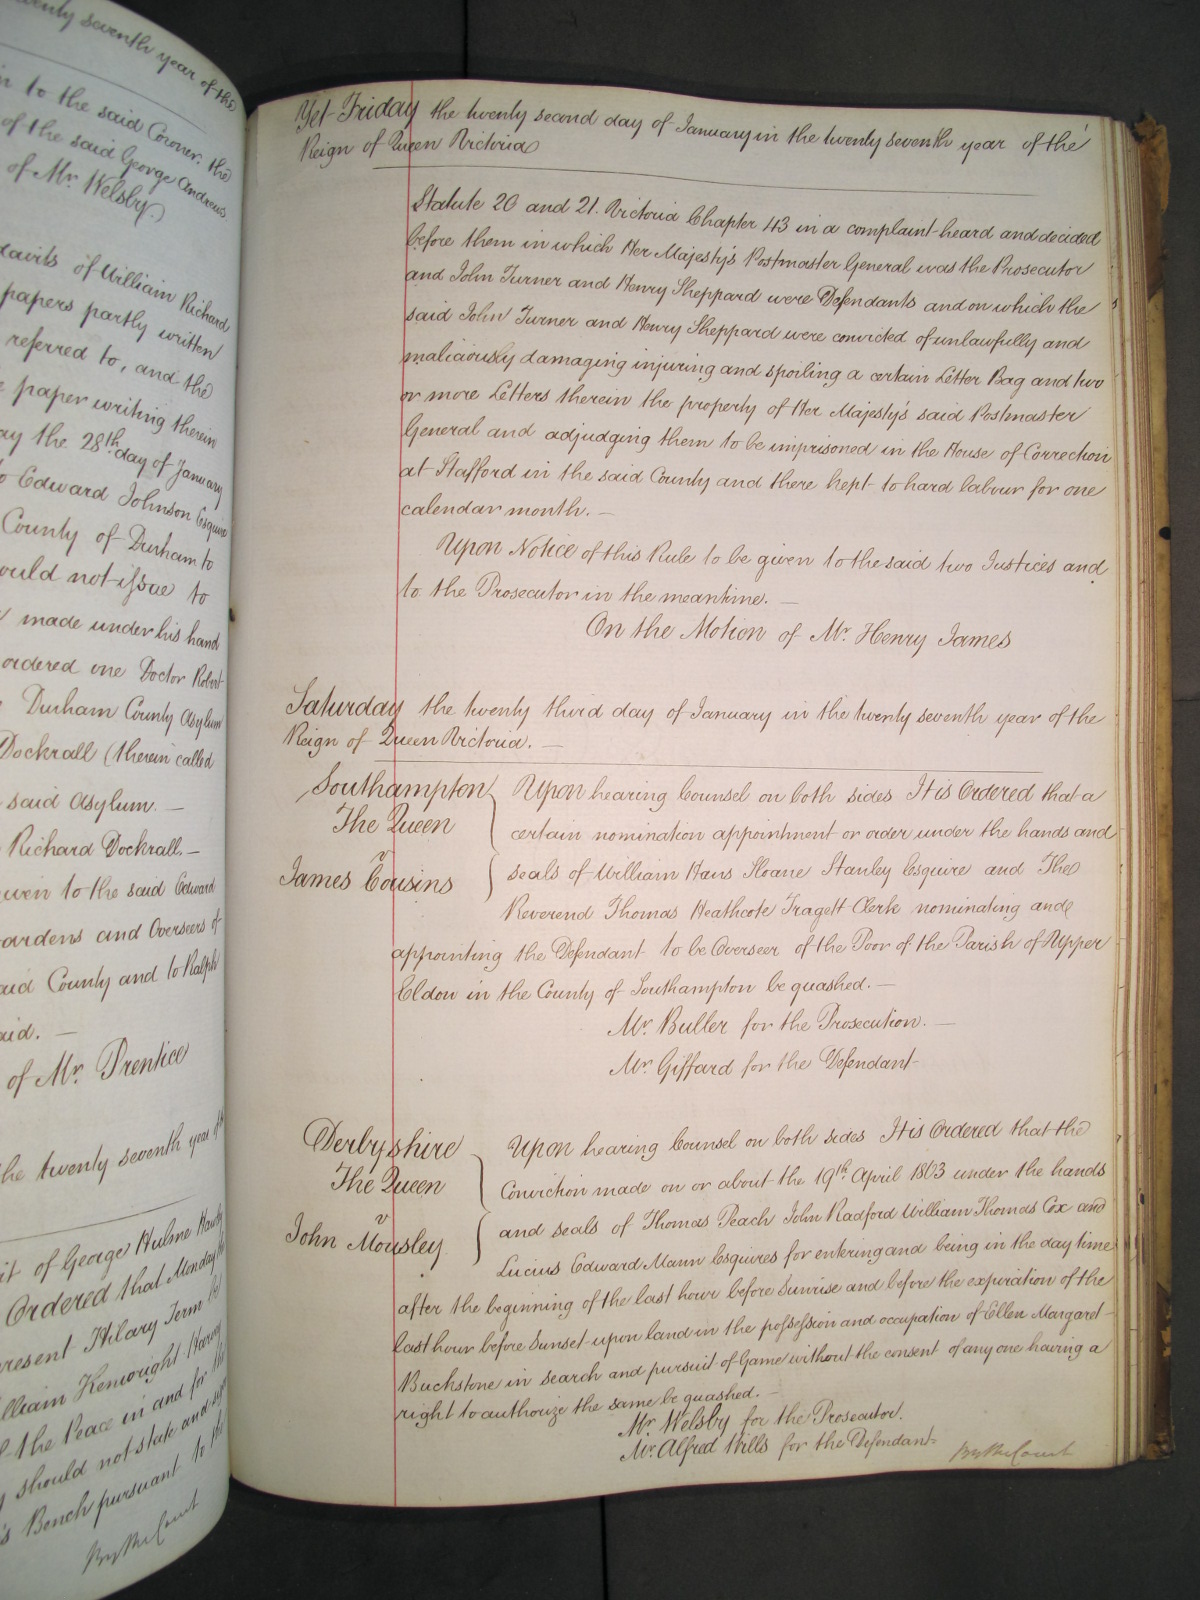 twenty seventh year of the
in to the said Coroner. the
of the said George Andrews
of Mr. Welsby.
davits of William Richard
papers partly written
referred to, and the
paper writing therein
ay the 28th day of January
to Edward Johnson Esquire
County of Durham to
ould not issue to
made under his hand
ordered one Doctor Robert
Durham County Asylum
Dockrall (therein called
said Asylum. —
Richard Dockrall. —
iven to the said Edward
ardens and Overseers of
aid County and to Ralph
aid. —
of Mr. Prentice
the twenty seventh year of the
it of George Hulme
Ordered that Monday
present Hilary Term
illiam Kenwright
f the Peace in and for the
y should not state and sign
's Bench pursuant to the
By the Court
Yet Friday the twenty second day of January in the twenty seventh year of the
Reign of Queen Victoria
Statute 20 and 21. Victoria Chapter 43 in a complaint heard and decided
before them in which Her Majesty's Postmaster General was the Prosecutor
and John Turner and Henry Sheppard were Defendants and on which the
said John Turner and Henry Sheppard were convicted of unlawfully and
maliciously damaging injuring and spoiling a certain Letter Bag and two
or more Letters therein the property of Her Majesty's said Postmaster
General and adjudging them to be imprisoned in the House of Correction
at Stafford in the said County and there kept to hard labour for one
calendar month. —
Upon Notice of this Rule to be given to the said two Justices and
to the Prosecutor in the meantime. —
On the Motion of Mr. Henry James
Saturday the twenty third day of January in the twenty seventh year of the
Reign of Queen Victoria. —
Southampton
The Queen
v
James Cousins
Upon hearing Counsel on both sides It is Ordered that a
certain nomination appointment or order under the hands and
seals of William Hans Sloane Stanley Esquire and The
Reverend Thomas Heathcote Tragett Clerk nominating and
appointing the Defendant to be Overseer of the Poor of the Parish of Upper
Eldon in the County of Southampton be quashed. —
Mr. Buller for the Prosecution. —
Mr. Giffard for the Defendant
Derbyshire
The Queen
v
John Mousley
Upon hearing Counsel on both sides It is Ordered that the
Conviction made on or about the 19th April 1863 under the hands
and seals of Thomas Peach John Radford William Thomas Cox and
Lucius Edward Mann Esquires for entering and being in the day time
after the beginning of the last hour before Sunrise and before the expiration of the
last hour before Sunset upon land in the possession and occupation of Ellen Margaret
Buchstone in search and pursuit of Game without the consent of any one having a
right to authorize the same be quashed. —
Mr. Welsby for the Prosecutor.
Mr. Alfred Wills for the Defendant
By the Court